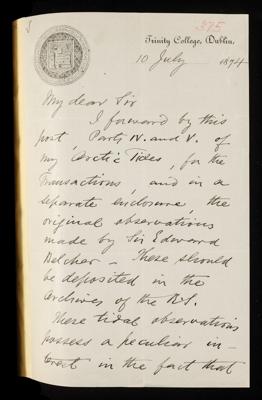 375
Trinity College, Dublin.
10 July 1874
My dear Sir
I forward by this
post, Parts IV. and V. of
my Arctic Tides, for the
Transactions, and in a
separate enclosure, the
original observations
made by Sir Edward
Belcher – These should
be deposited in the
archives of the RS.
These tidal observations
possess a peculiar in-
terest in the fact that